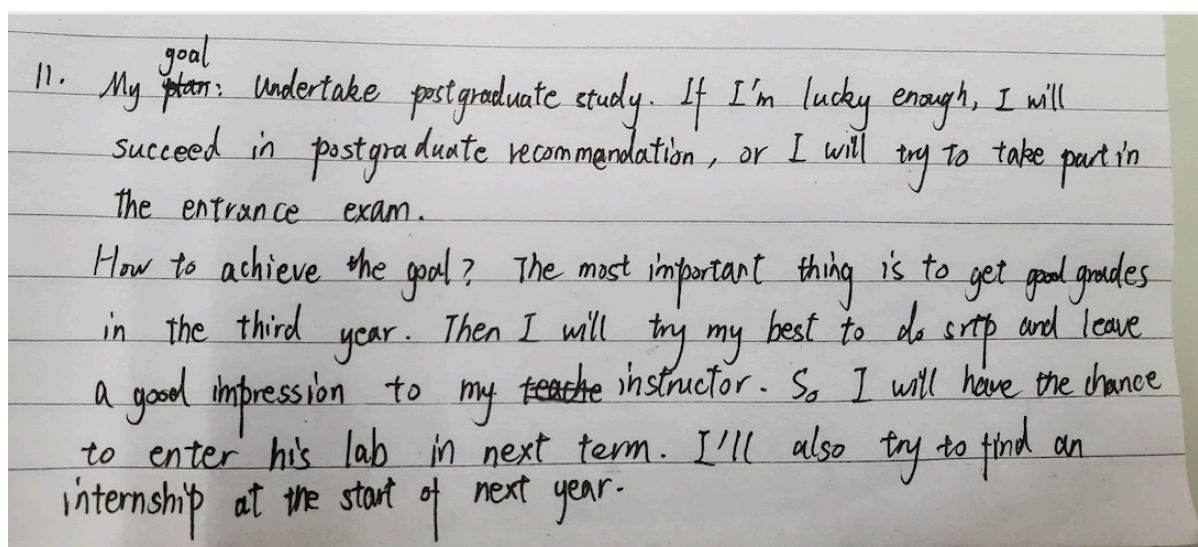 goal
11. My plan: Undertake postgraduate study. If I'm lucky enough, I will
succeed in postgraduate recommendation, or I will try to take part in
the entrance exam.
How to achieve the goal? The most important thing is to get good grades
in the third year. Then I will try my best to do srtp and leave
a good impression to my teache instructor. So I will have the chance
to enter his lab in next term. I'll also try to find an
internship at the start of next year.